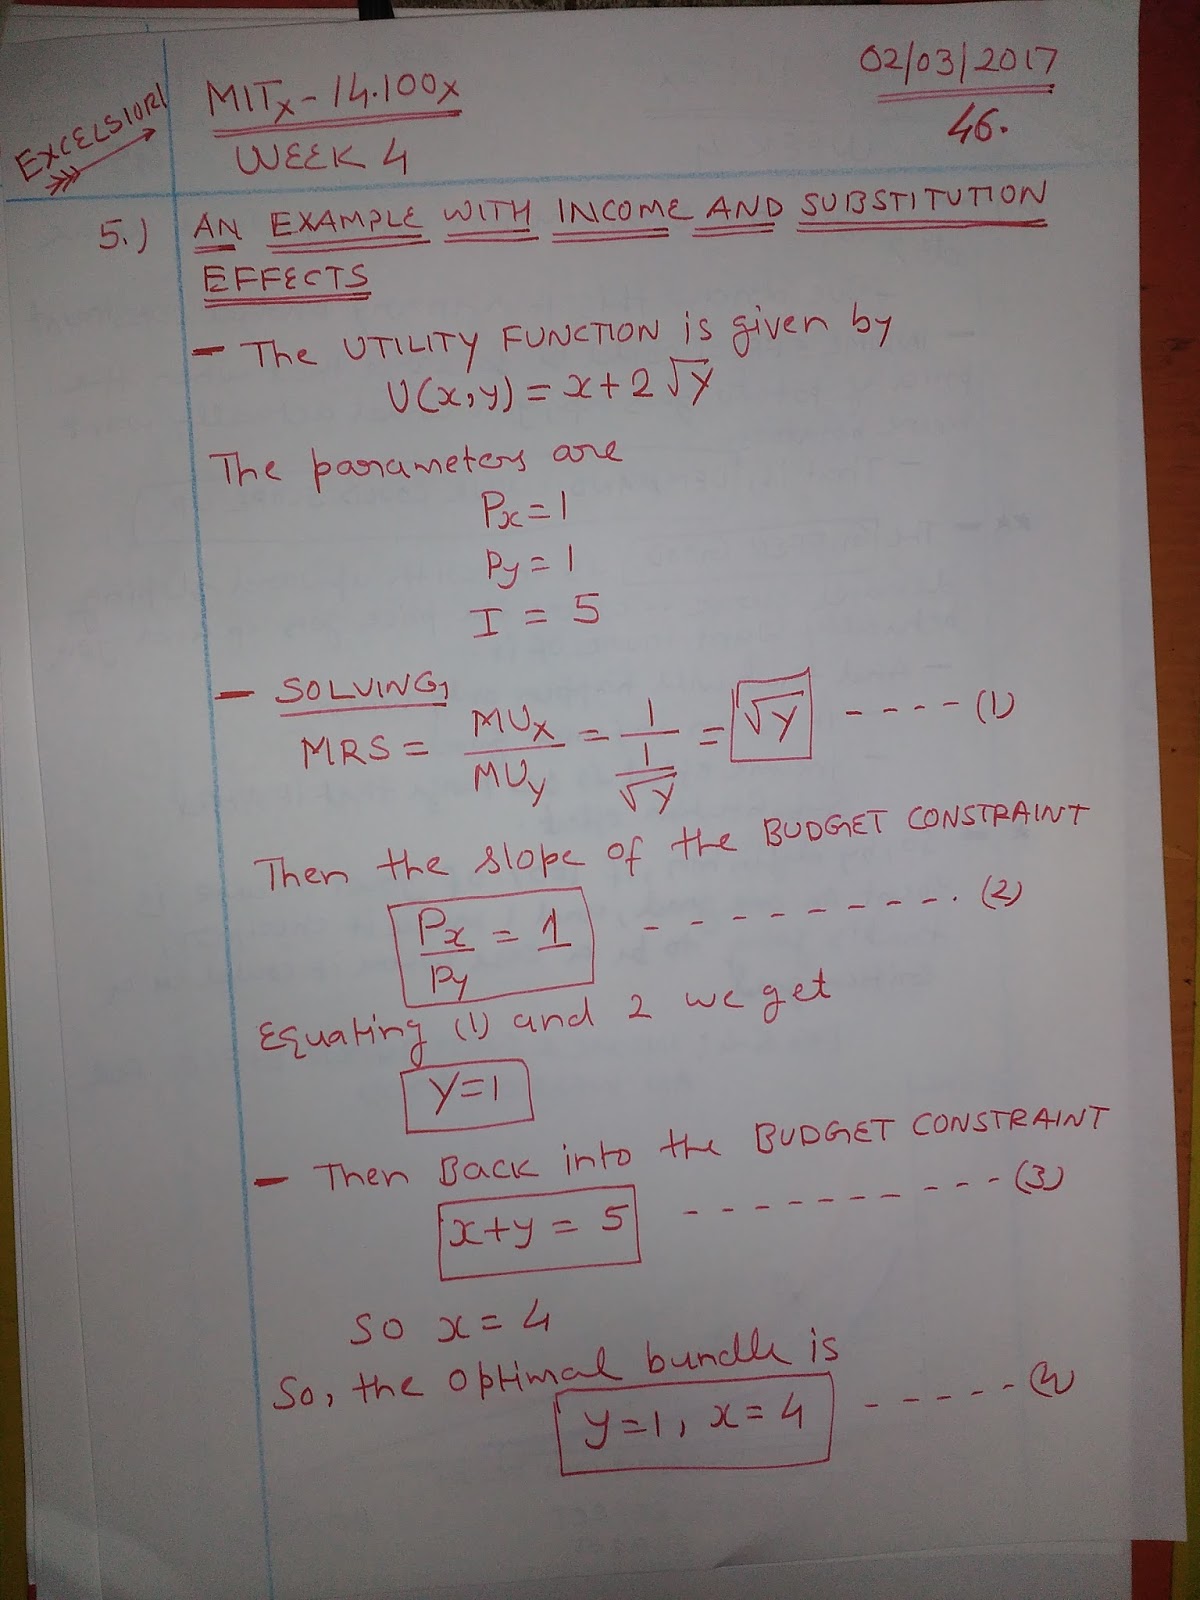 EXCELSIOR!
MITx - 14.100x
WEEK 4
02/03/2017
46.
5.) AN EXAMPLE WITH INCOME AND SUBSTITUTION
EFFECTS
- The UTILITY FUNCTION is given by
U(x,y) = x + 2√y
The parameters are
Px = 1
Py = 1
I = 5
- SOLVING,
MRS = MUx/MUy = 1/(1/√y) = √y ---- (1)
Then the slope of the BUDGET CONSTRAINT
Px/Py = 1 -------- (2)
Equating (1) and 2 we get
y=1
- Then BACK into the BUDGET CONSTRAINT
x+y = 5 ---------- (3)
SO x = 4
So, the optimal bundle is
y=1, x=4 ----- (4)